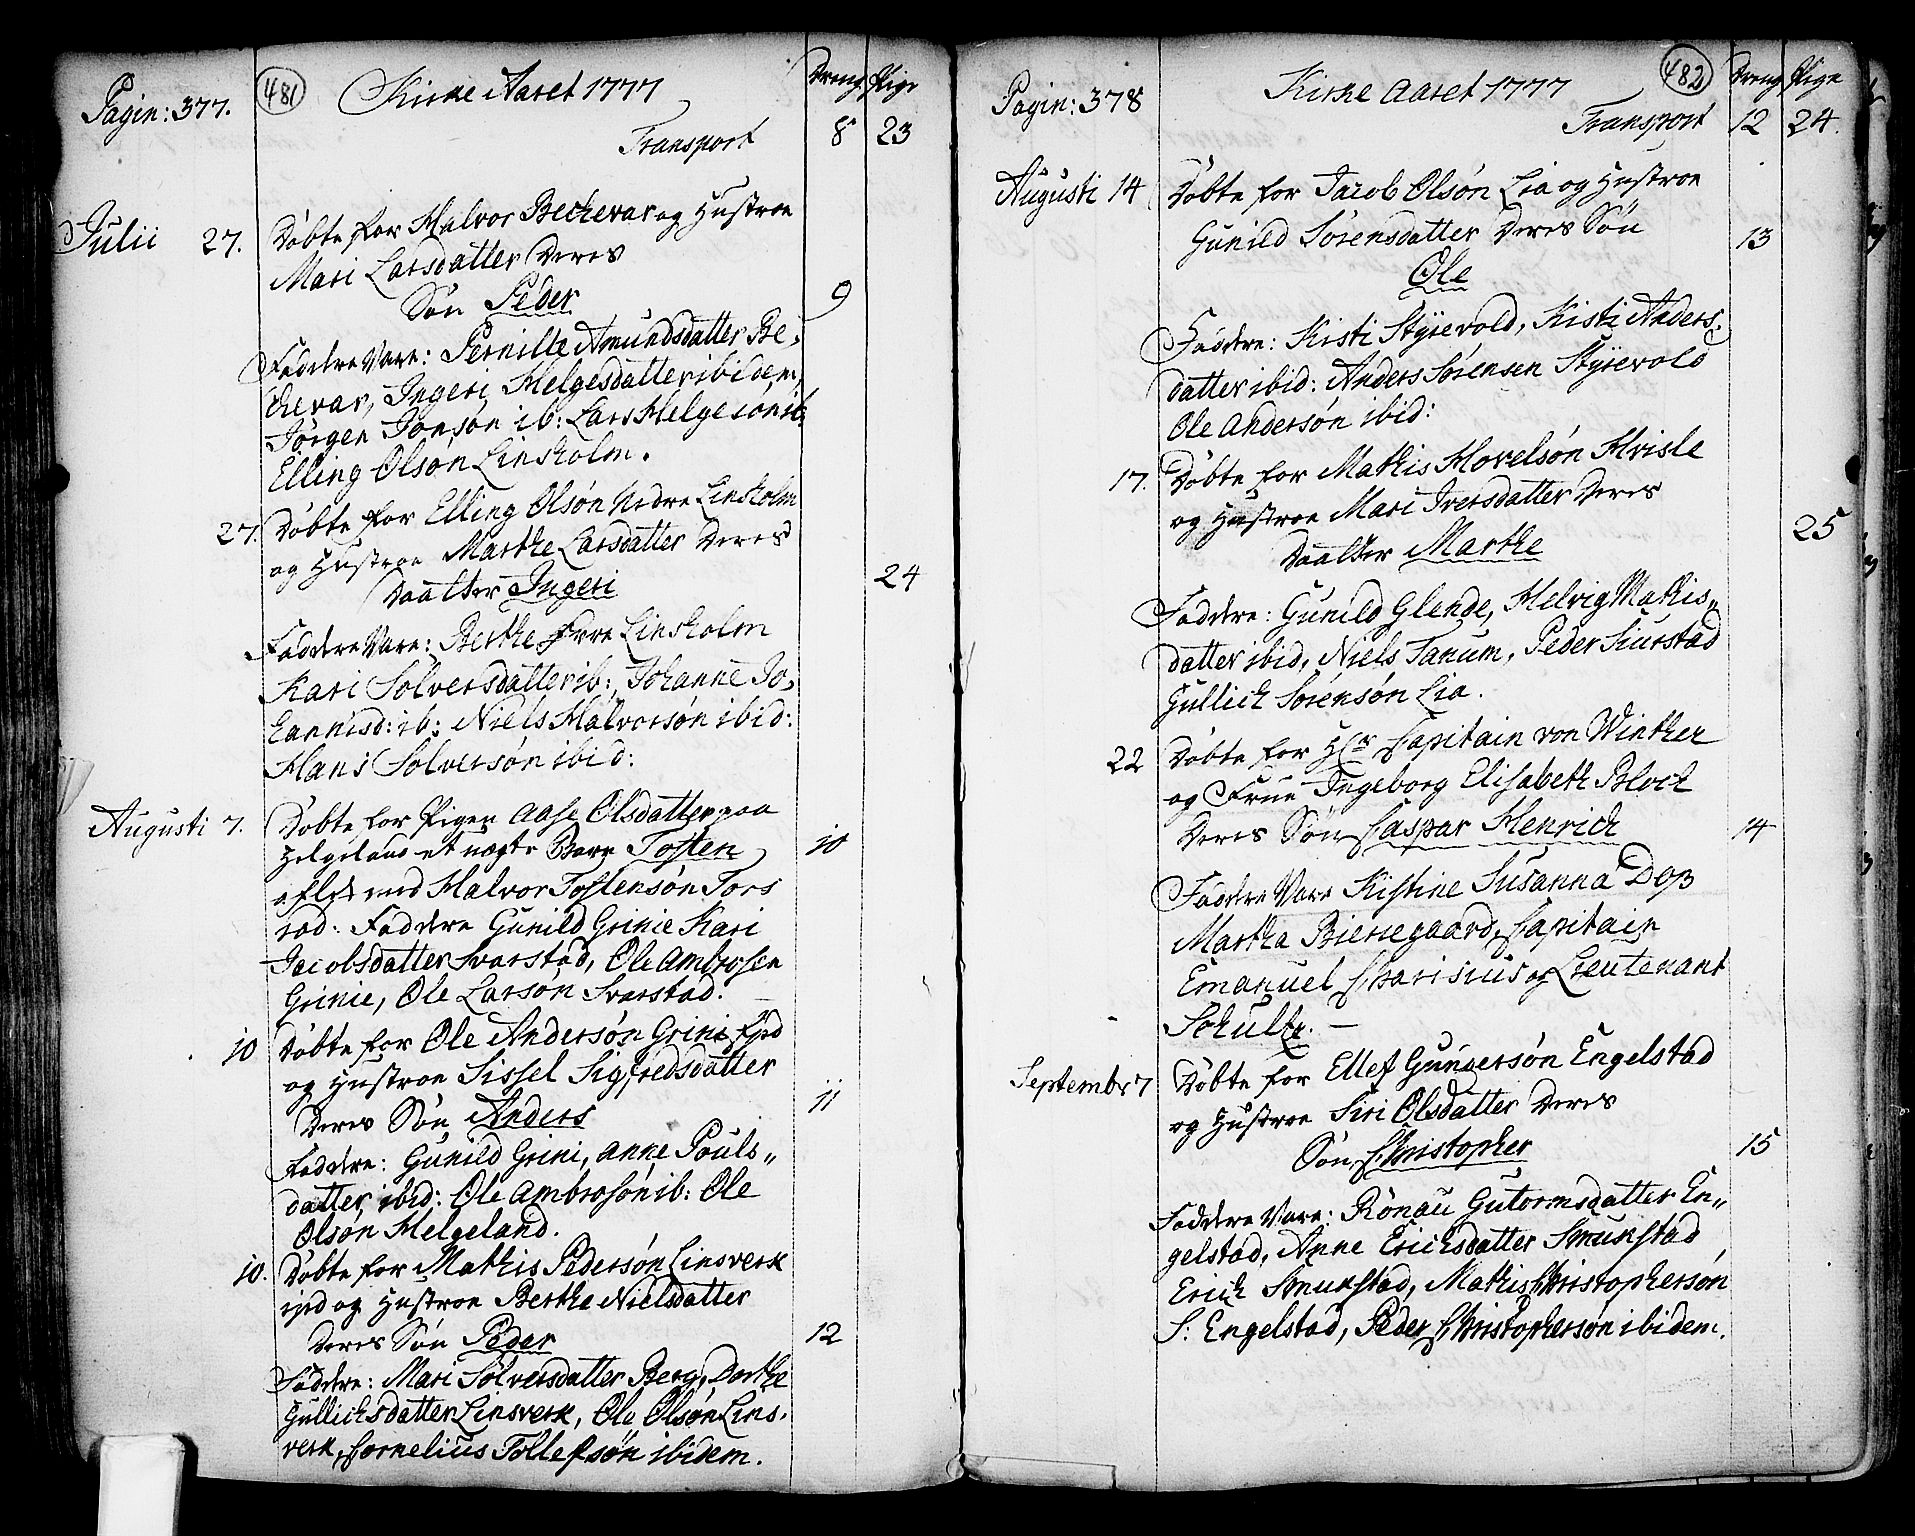 Pagin: 377.
481
Kirke Aaret 1777
Dreng Pige
Transport 8 23
Julii 27. Døbte for Halvor Beckevar og Hustroe
Mari Larsdatter Deres
Søn Peder 9
Faddere Vare: Pernille Amundsdatter Be,
ckevar, Ingeri Helgesdatter ibidem,
Jörgen Jonsøn ib: Lars Helgesøn ib:
Elling Olsøn Linsholm.
27. Døbte for Elling Olsøn Nedre Linsholm
og Hustroe Marthe Larsdatter Deres
Daatter Ingeri 24
Faddere Vare: Berthe Linsholm
Kari Solversdatter ib:, Johanne Jo,
hannisd: ib: Niels Halvorsøn ibid:
Hans Solversøn ibid:
Augusti 7. Døbte for Pigen Aase Olsdatter paa
Helgeland et uægte Barn Tosten 10
aflet med Halvor Tostensøn Tors
rød. Faddere Gunild Grinie Kari
Jacobsdatter Svarstad, Ole Ambrosen
Grinie, Ole Larsøn Svarstad.
10 Døbte for Ole Andersøn Grini
og Hustroe Sissel Sigfredsdatter
Deres Søn Anders 11
Faddere: Gunild Grini, Anne Pouls,,
datter, ibid: Ole Ambrosøn ib: Ole
Olsøn Helgeland.
10. Døbte for Mathis Pedersøn Linsverk
og Hustroe Berthe Nielsdatter
Deres Søn Peder 12
Faddere: Mari Sølversdatter Berg, Dorthe
Gullichsdatter Linsverk, Ole Olsøn Lins,
verk, Cornelius Tollefsøn ibidem.
Pagin: 378
Kirke Aaret 1777
482
Dreng Pige
Transport 12 24.
Augusti 14 Døbte for Jacob Olsøn Lia og Hustroe
Gunild Sørensdatter Deres Søn 13
Ole
Faddere: Kisti Styrevold, Kisti Anders,
datter ibid: Anders Sørensen Styrevold
Ole Andersøn ibid:
17. Døbte for Mathis Hovelsøn Hvisle
og Hustroe Mari Iversdatter Deres
Daatter Marthe 25
Faddere: Gunild Glende, Helvig Mathis,,
datter ibid, Niels Tanum, Peder Siurstad
Gullich Sørensøn Lia.
22 Døbte for Hr Capitain von Winther
og Frue Ingeborg Elisabeth Bloch
Deres Søn Caspar Henrich 14
Faddere Vare Kistine Susanna Dop
Martha Bierregaard, Capitain
Emanuel Charisius og Lieutenant
Schultz. —
Septembr 7 Døbte for Ellef Gunersøn Engelstad
og Hustroe Siri Olsdatter Deres
Søn Christopher 15
Faddere Vare: Rönau Gutormsdatter En,,
gelstad, Anne Erichsdatter Smukstad
Erich Smukstad, Mathis Christophersøn
S: Engelstad, Peder Christophersøn ibidem.